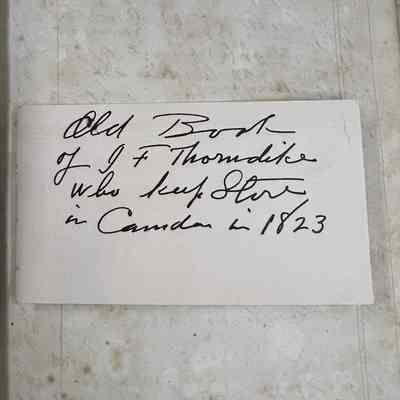 Old Book
of J F Thorndike
who keep Store
in Camden in 1823